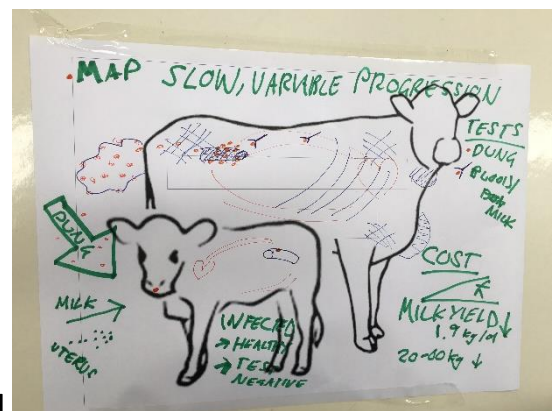 MAP SLOW, VARIABLE PROGRESSION
TESTS
DUNG
BLOOD/
MILK
DUNG
MILK
UTERUS
INFECTED
→ HEALTHY
→ TEST
NEGATIVE
COST
MILK YIELD ↓
1.9 kg/d
kg ↓